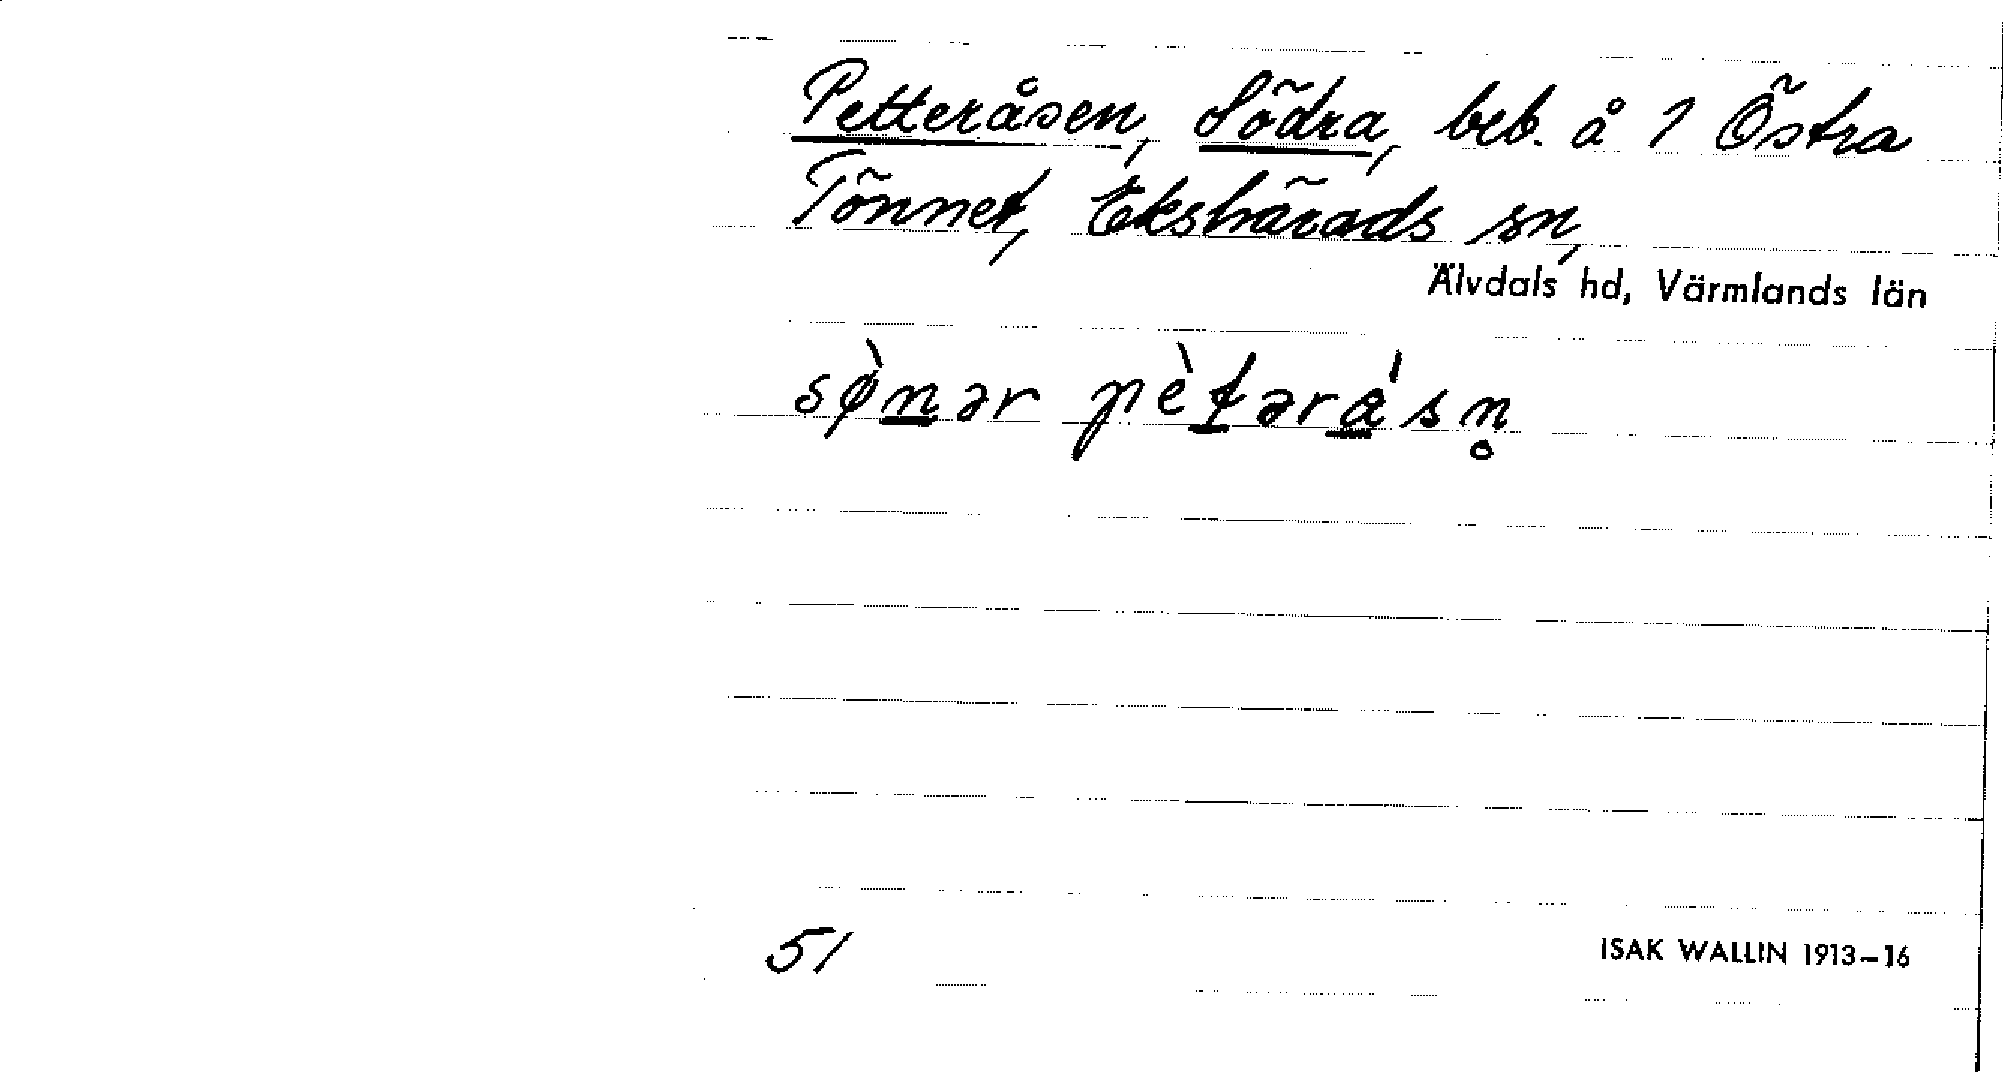 Petteråsen, Södra, beb. å 1 Östra
Tönnet, Ekshärads sn,
Älvdals hd, Värmlands län
sø̀n̲ər pèt̲əra̲̍sn̥
51
ISAK WALLIN 1913–16